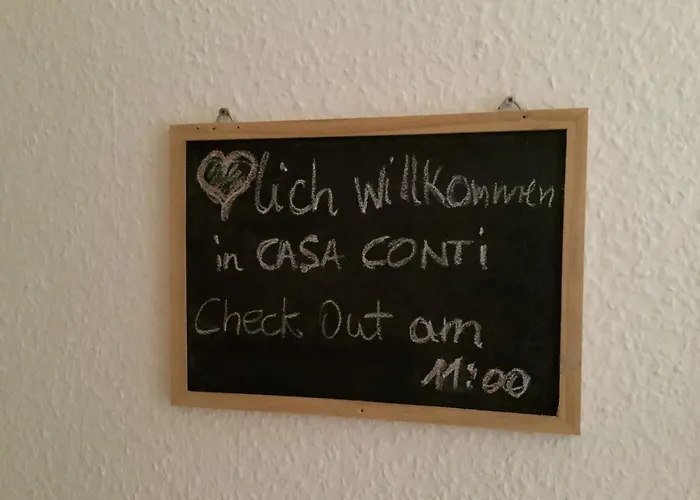 ❤lich Willkommen
in CASA CONTi
Check Out am
11:00